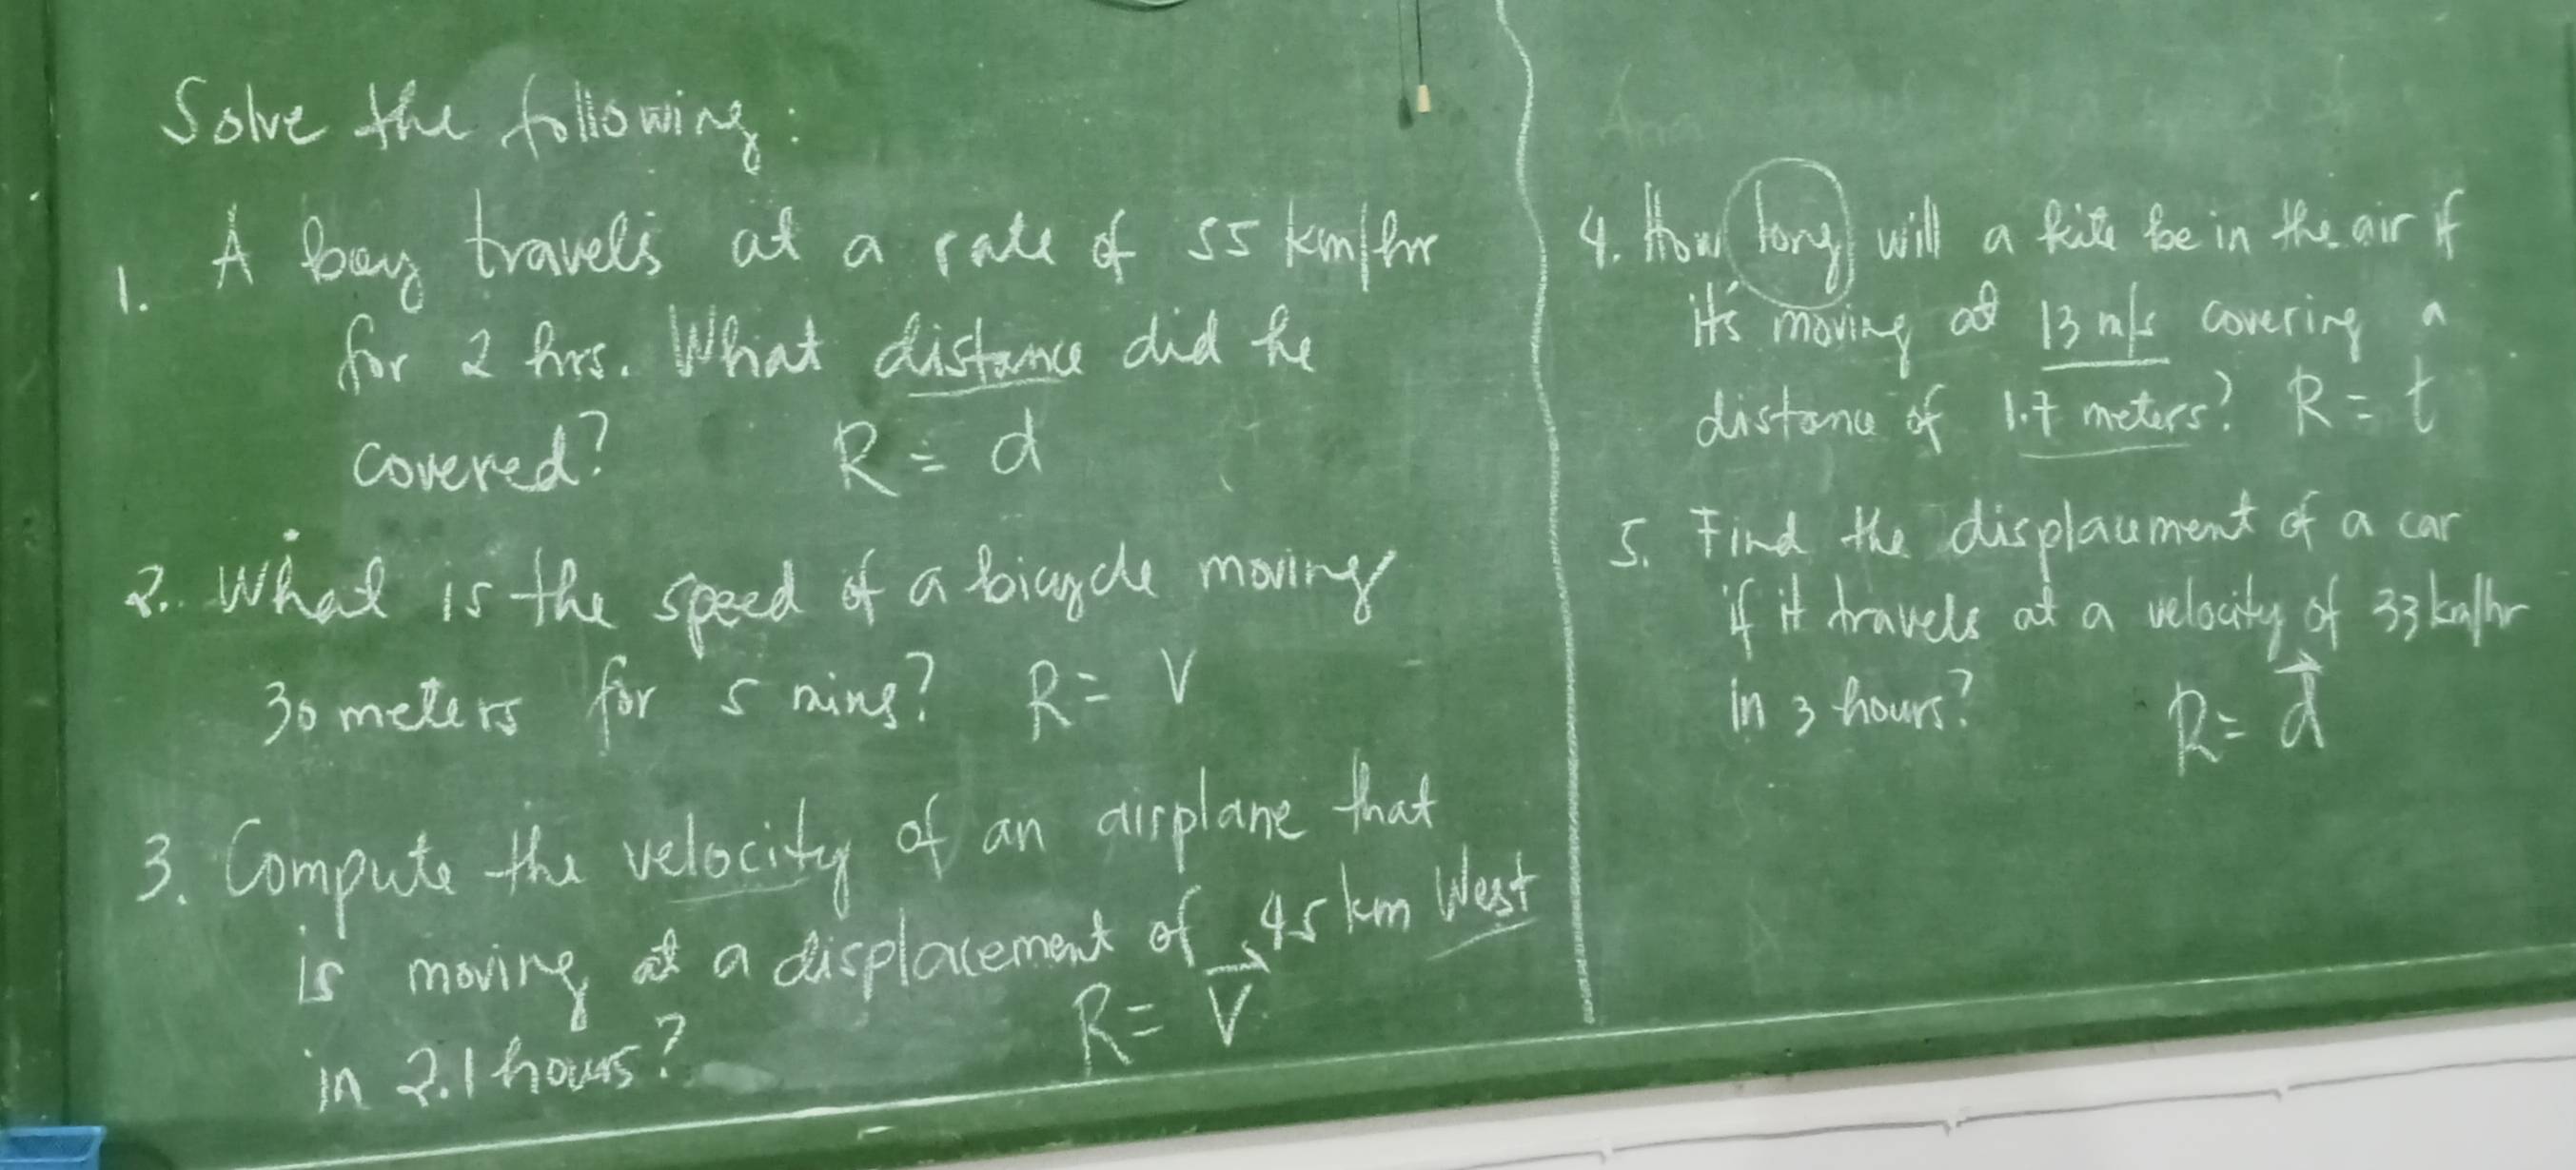 Solve the following:
1. A boy travels at a rate of 55 km/hr
for 2 hrs. What distance did he
covered? R = d
2. What is the speed of a bicycle moving
30 meters for 5 mins? R = V
3. Compute the velocity of an airplane that
is moving at a displacement of 45 km West
in 2.1 hours? R = V⃗
4. How long will a kite be in the air if
it's moving at 13 m/s covering a
distance of 1.7 meters? R = t
5. Find the displacement of a car
if it travels at a velocity of 33 km/hr
in 3 hours? R = d⃗